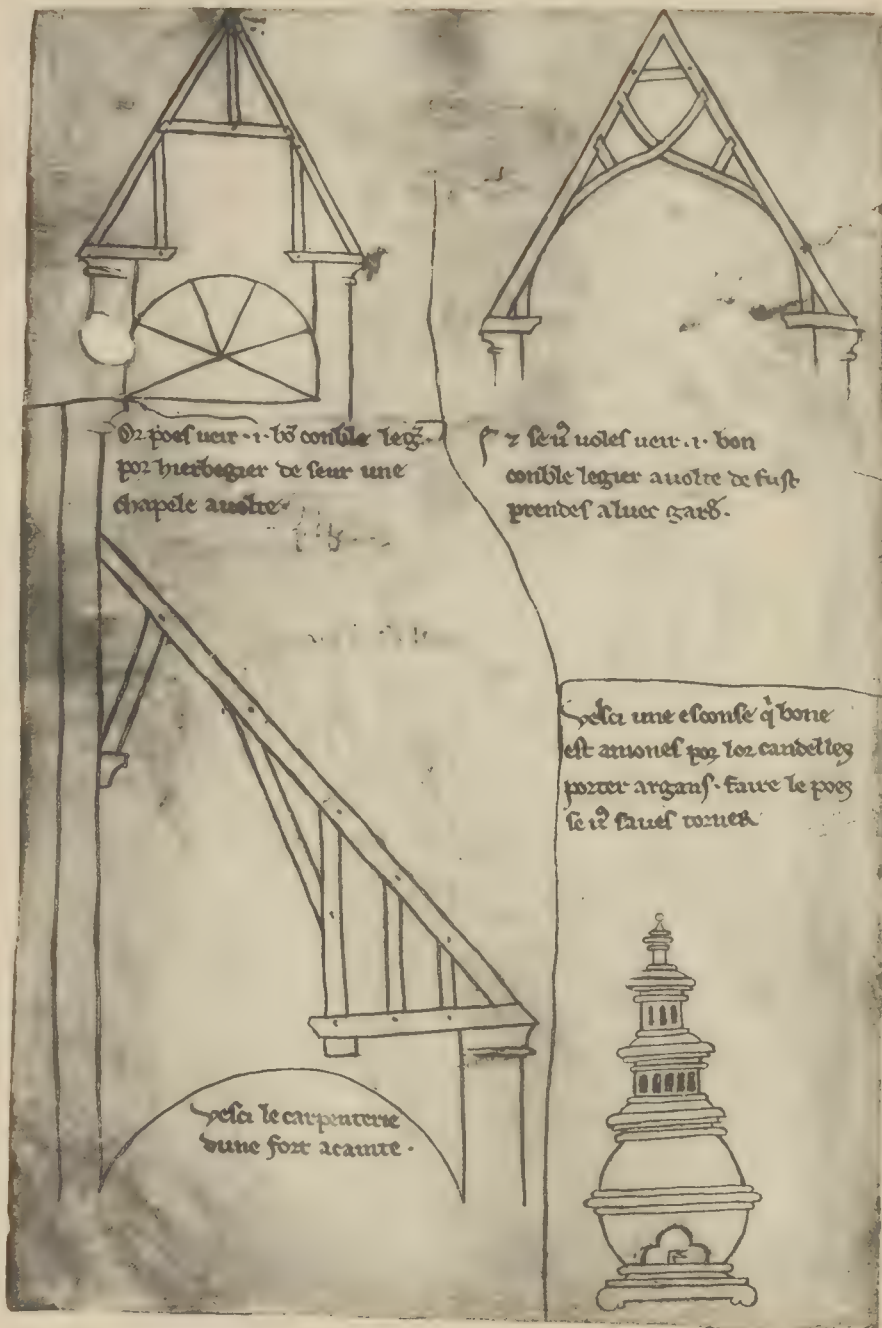 Or poes ueir · i · bō conble leg̃ ·
por hierbegier de seur une
chapele auolte ·
⁊ se ũ uoles ueir · i · bon
conble legier a uolte de fust
prendes aluec gard ·
vesci une esconse q̇ bone
est a mones por lor candelles
porter argans · faire le poes
se ũ saues torner
vesci le carpenterie
dune fort acainte ·